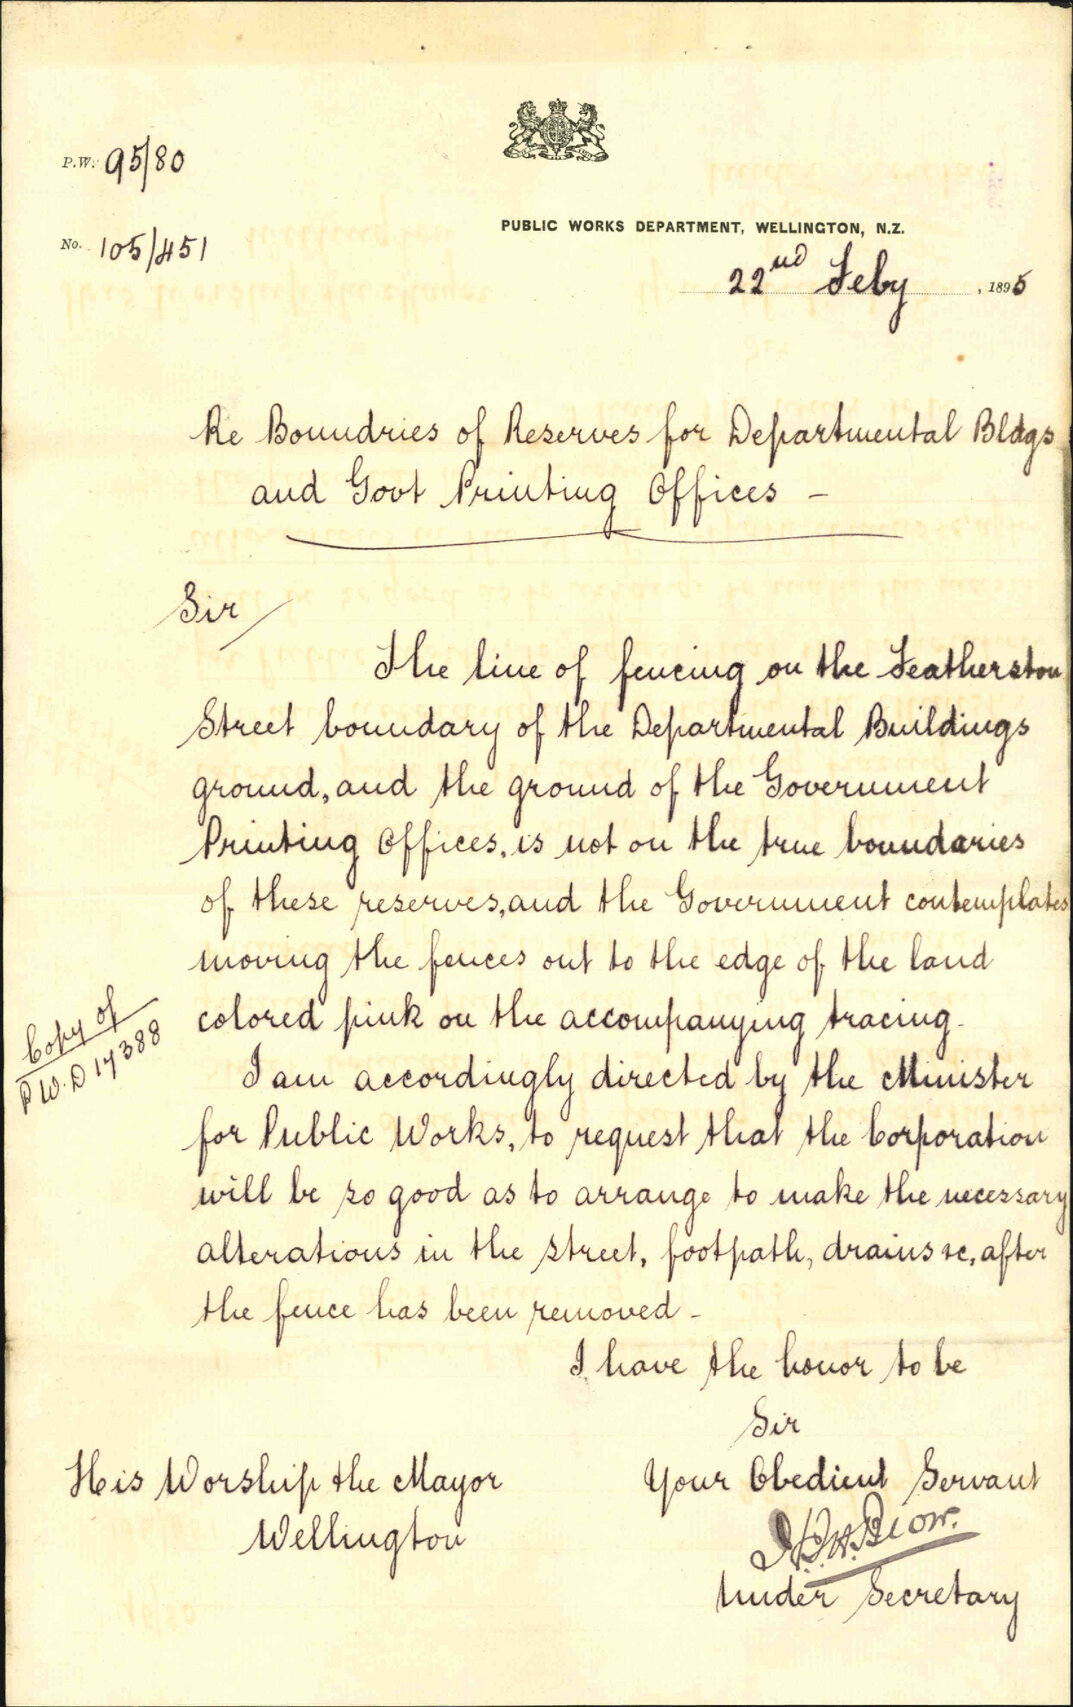 P.W. 95/80
No. 105/451
PUBLIC WORKS DEPARTMENT, WELLINGTON, N.Z.
22nd Feby, 1895
Re Boundries of Reserves for Departmental Bldgs
and Govt Printing Offices –
Sir/
The line of fencing on the Featherston
Street boundary of the Departmental Buildings
ground, and the ground of the Government
Printing Offices, is not on the true boundaries
of these reserves, and the Government contemplates
moving the fences out to the edge of the land
colored pink on the accompanying tracing.
Copy of
P.W.D 17388
I am accordingly directed by the Minister
for Public Works, to request that the Corporation
will be so good as to arrange to make the necessary
alterations in the street, footpath, drains &c, after
the fence has been removed –
I have the honor to be
Sir
Your Obedient Servant
Under Secretary
His Worship the Mayor
Wellington